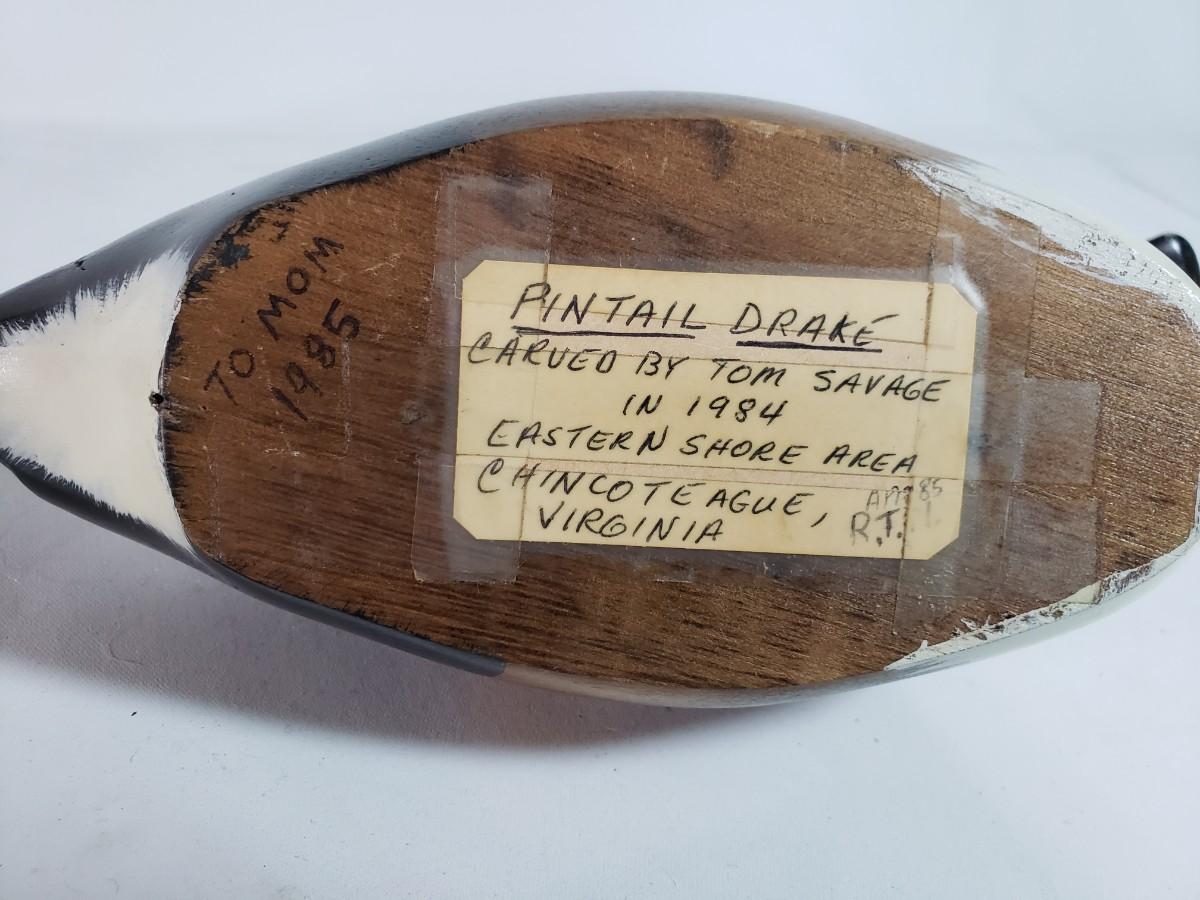 TO MOM
1985
PINTAIL DRAKE
CARVED BY TOM SAVAGE
IN 1984
EASTERN SHORE AREA
CHINCOTEAGUE,
VIRGINIA
85
R.T.